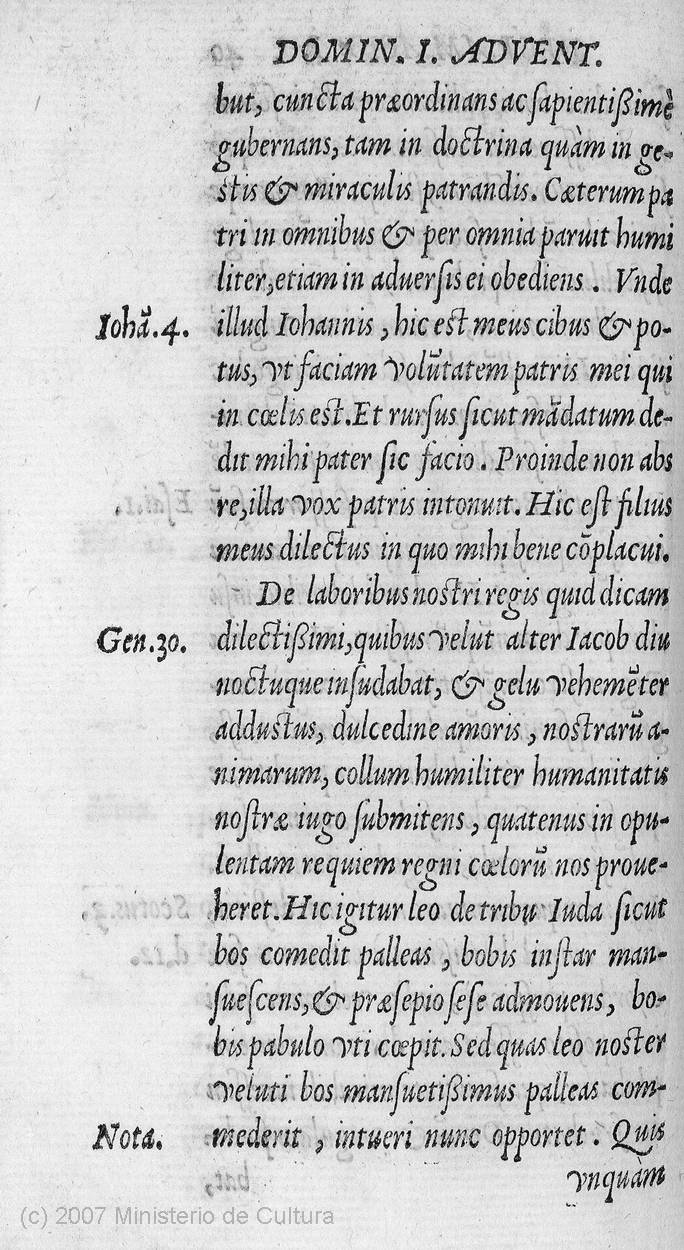 DOMIN. I. ADVENT.
but, cuncta præordinans ac sapientißimè
gubernans, tam in doctrina quàm in ge-
stis & miraculis patrandis. Cæterum pa
tri in omnibus & per omnia paruit humi
liter, etiam in aduersis ei obediens . Vnde
Iohā.4. illud Iohannis , hic est meus cibus & po-
tus, vt faciam volūtatem patris mei qui
in cœlis est. Et rursus sicut mādatum de-
dit mihi pater sic facio . Proinde non abs
re, illa vox patris intonuit. Hic est filius
meus dilectus in quo mihi bene cōplacui.
De laboribus nostri regis quid dicam
Gen.30. dilectißimi, quibus velut alter Iacob diu
noctuque insudabat, & gelu vehemēter
addustus, dulcedine amoris , nostrarū a-
nimarum, collum humiliter humanitatis
nostræ iugo submitens , quatenus in opu-
lentam requiem regni cœlorū nos proue-
heret. Hic igitur leo de tribu Iuda sicut
bos comedit palleas , bobis instar man-
suescens, & præsepio sese admouens, bo-
bis pabulo vti cœpit. Sed quas leo noster
veluti bos mansuetißimus palleas com-
Nota. mederit , intueri nunc opportet . Quis
vnquàm
(c) 2007 Ministerio de Cultura